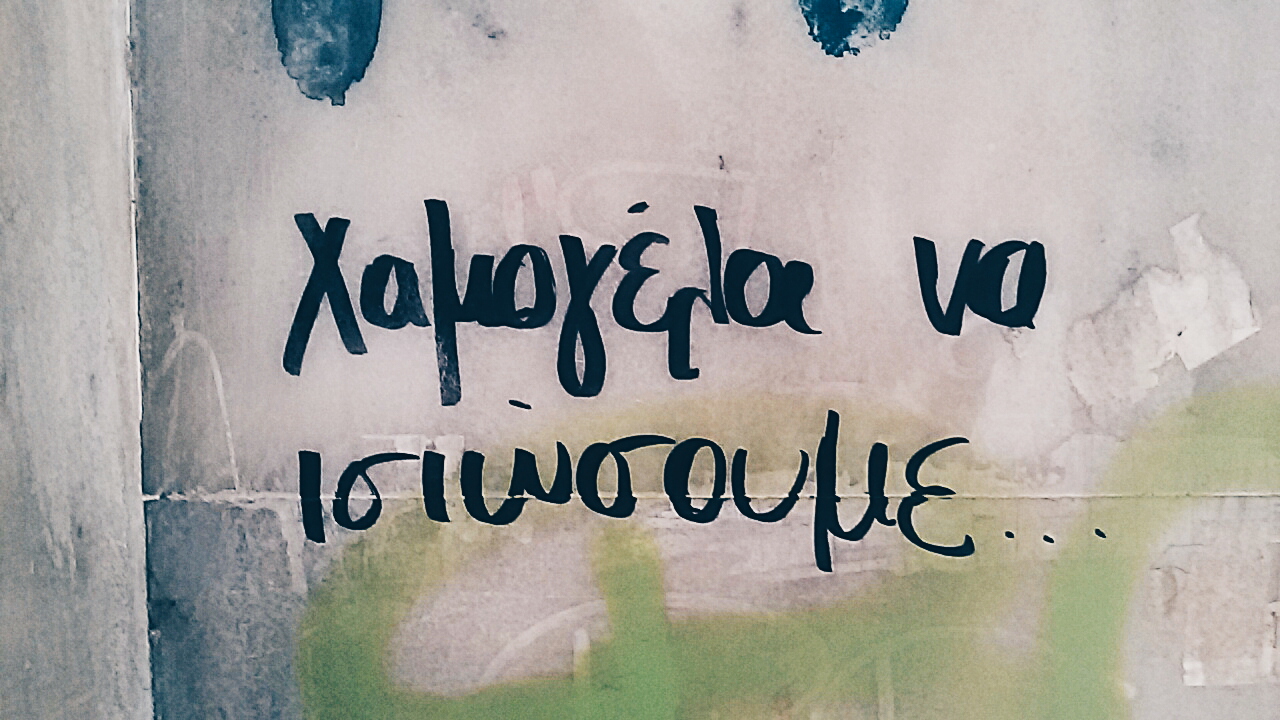 Χαμογέλα να
ισιώσουμε...